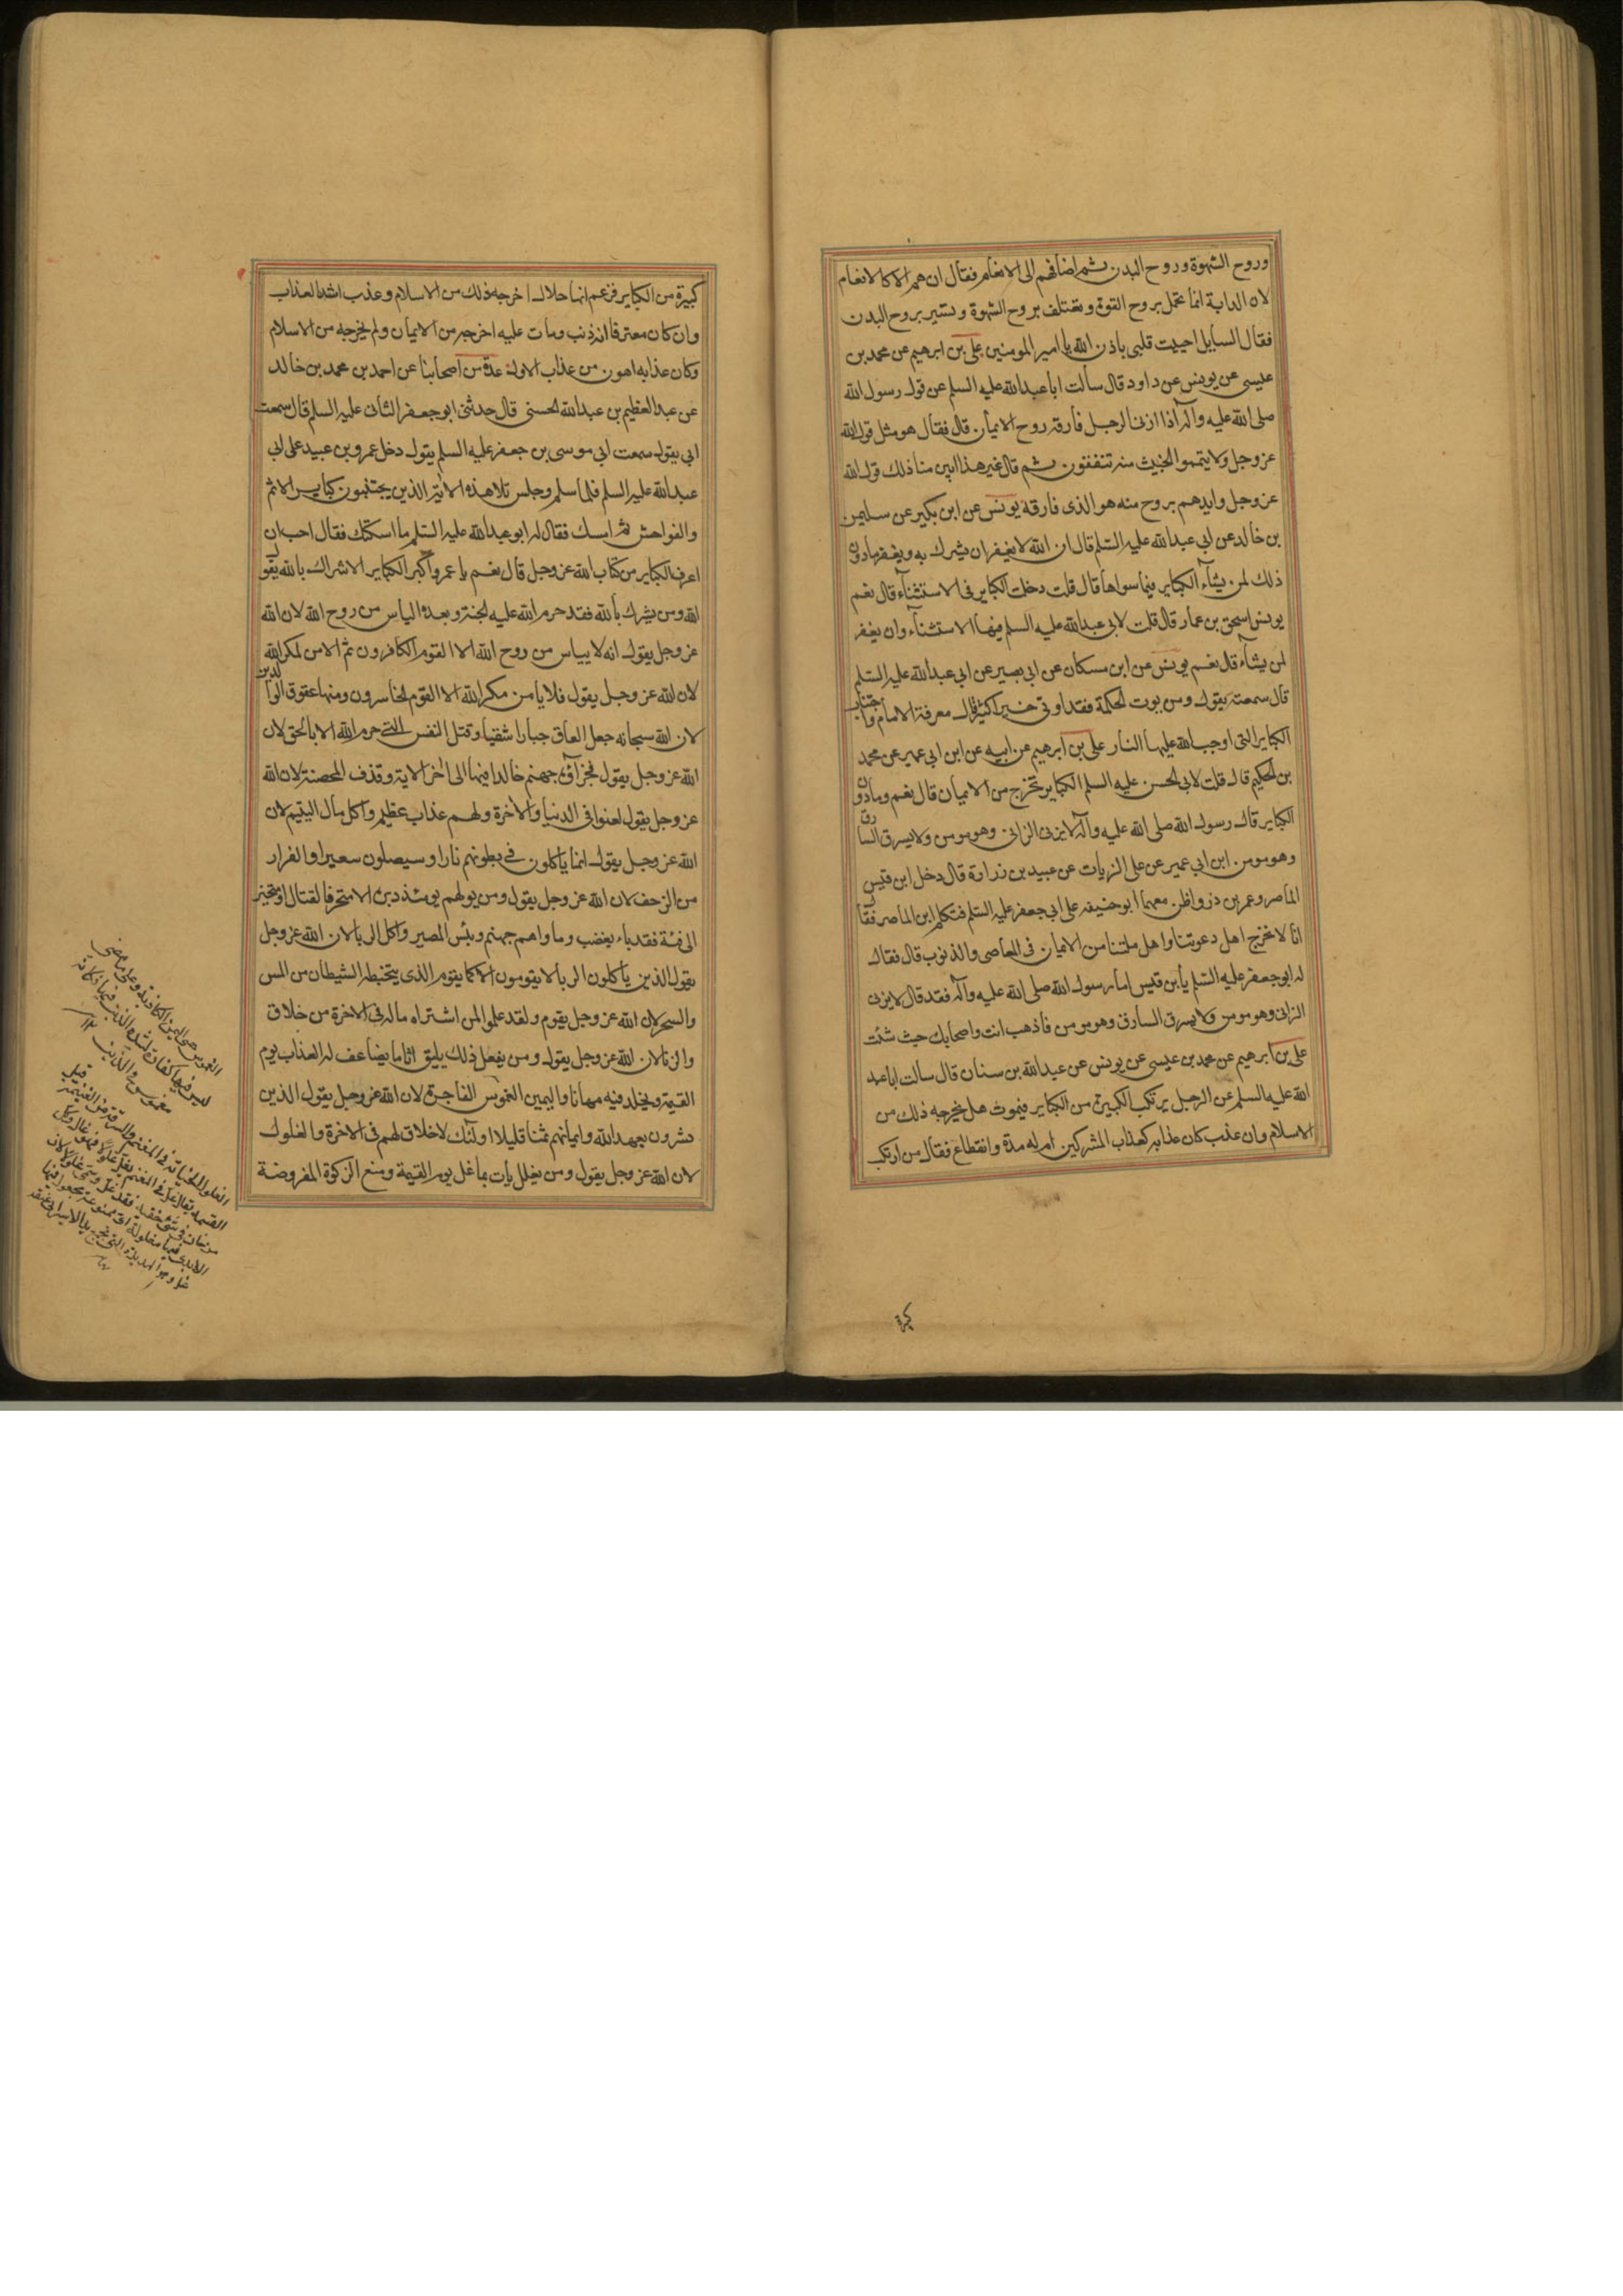 وروح الشهوة وروح البدن ثم اضافهم الى الانعام فقال ان هم الا كالانعام
لان الدابة انما تحمل بروح القوة وتعتلف بروح الشهوة وتسير بروح البدن
فقال السايل احييت قلبي باذن الله يا امير المومنين على بن ابرهيم عن محمد بن
عيسى عن يونس عن داود قال سألت ابا عبد الله عليه السلم عن قول رسول الله
صلى الله عليه وآله اذا زنا الرجل فارقه روح الايمان قال فقال هو مثل قول الله
عز وجل ولا تيمموا الخبيث منه تنفقون ثم قال غير هذا ابين منا ذلك قول الله
عز وجل وايدهم بروح منه هو الذى فارقه يونس عن ابن بكير عن سليمن
بن خالد عن ابي عبد الله عليه السلم قال ان الله لا يغفر ان يشرك به ويغفر ما دون
ذلك لمن يشآء الكباير فيما سواها قال قلت دخلت الكباير فى الاستثنآء قال نعم
يونس اسحق بن عمار قال قلت لابي عبد الله عليه السلم فيها الاستثنآء وان يغفر
لمن يشآء قال نعم يونس عن ابن مسكان عن ابي بصير عن ابي عبد الله عليه السلم
قال سمعته يقول ومن يوت الحكمة فقد اوتى خيرا كثيرا قال معرفة الامام واجتناب
الكباير التى اوجب الله عليها النار على بن ابرهيم عن ابيه عن ابن ابي عمير عن محمد
بن الحكيم قال قلت لابي الحسن عليه السلم الكباير تخرج من الايمان قال نعم وما دون
الكباير قال رسول الله صلى الله عليه وآله لا يزنى الزانى وهو مومن ولا يسرق السارق
وهو مومن ابن ابي عمير عن على الزيات عن عبيد بن زرارة قال دخل ابن قيس
الماصر وعمر بن ذر واظن معهما ابو حنيفه على ابي جعفر عليه السلم فتكلم ابن الماصر فقال
انا لا نخرج اهل دعوتنا واهل ملتنا من الايمان فى المعاصى والذنوب قال فقال
له ابو جعفر عليه السلم يا بن قيس اما رسول الله صلى الله عليه وآله فقد قال لا يزنى
الزانى وهو مومن ولا يسرق السارق وهو مومن فاذهب انت واصحابك حيث شئت
على بن ابرهيم عن محمد بن عيسى عن يونس عن عبد الله بن سنان قال سالت ابا عبد
الله عليه السلم عن الرجل يرتكب الكبيرة من الكباير فيموت هل يخرجه ذلك من
الاسلام وان عذب كان عذابه كعذاب المشركين ام له مدة وانقطاع فقال من ارتكب
كبيرة
كبيرة من الكباير فزعم انها حلال اخرجه ذلك من الاسلام وعذب اشد العذاب
وان كان معترفا انه ذنب ومات عليه اخرجه من الايمان ولم يخرجه من الاسلام
وكان عذابه اهون من عذاب الاول عدة من اصحابنا عن احمد بن محمد بن خالد
عن عبد العظيم بن عبد الله الحسنى قال حدثنى ابو جعفر الثانى عليه السلم قال سمعت
ابي يقول سمعت ابي موسى بن جعفر عليه السلم يقول دخل عمرو بن عبيد على ابي
عبد الله عليه السلم فلما سلم وجلس تلا هذه الاية الذين يجتنبون كباير الاثم
والفواحش ثم امسك فقال له ابو عبد الله عليه السلم ما اسكتك فقال احب ان
اعرف الكباير من كتاب الله عز وجل قال نعم يا عمرو اكبر الكباير الاشراك بالله يقول
الله ومن يشرك بالله فقد حرم الله عليه الجنة وبعده الياس من روح الله لان الله
عز وجل يقول انه لا يياس من روح الله الا القوم الكافرون ثم الامن لمكر الله
لان الله عز وجل يقول فلا يا من مكر الله الا القوم الخاسرون ومنها عقوق الوالدين
لان الله سبحانه جعل العاق جبارا شقيا وقتل النفس التى حرم الله الا بالحق لان
الله عز وجل يقول فجزآؤه جهنم خالدا فيها الى اخر الاية وقذف المحصنة لان الله
عز وجل يقول لعنوا فى الدنيا والاخرة ولهم عذاب عظيم واكل مال اليتيم لان
الله عز وجل يقول انما ياكلون فى بطونهم نارا وسيصلون سعيرا والفرار
من الزحف لان الله عز وجل يقول ومن يولهم يومئذ دبره الا متحرفا لقتال او متحيزا
الى فئة فقد باء بغضب وماواهم جهنم وبئس المصير واكل الربا لان الله عز وجل
يقول الذين ياكلون الربا لا يقومون الا كما يقوم الذى يتخبطه الشيطان من المس
والسحر لان الله عز وجل يقوم ولقد علموا لمن اشتراه ما له فى الاخرة من خلاق
والزنا لان الله عز وجل يقول ومن يفعل ذلك يلق اثاما يضاعف له العذاب يوم
القيمة ويخلد فيه مهانا واليمين الغموس الفاجرة لان الله عز وجل يقول الذين
يشرون بعهد الله وايمانهم ثمنا قليلا اولئك لا خلاق لهم فى الاخرة والغلول
لان الله عز وجل يقول ومن يغلل يات بما غل يوم القيمة ومنع الزكوة المفروضة
الغموس هى اليمين الكاذبة
ليس فيها كفارة لشدة الذنب فيها
الغلول الخيانة فى المغنم والسرقة من الغنيمة قبل
القسمة يقال غل فى المغنم يغل غلولا فهو غال وكل
من خان فى شئ خفية فقد غل وسمى غلولا لان
الايدى فيها مغلولة اى ممنوعة مجعول فيها